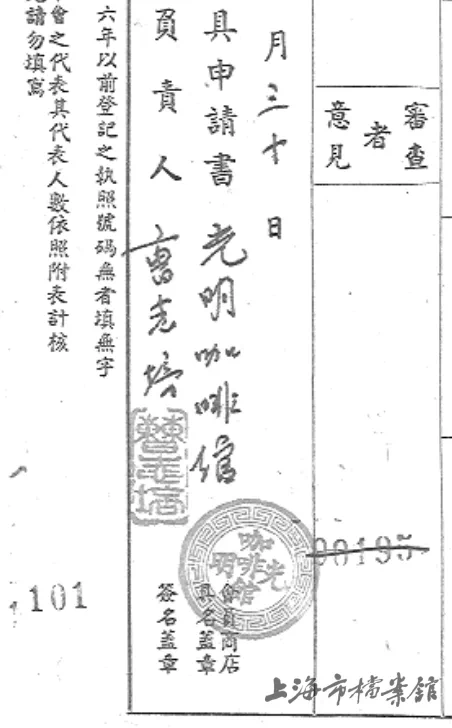 審查者意見
00195
月三十日
具申請書 光明咖啡館
會員商店
具名蓋章
負責人 曹志培
簽名蓋章
曹志培
光明咖啡館
六年以前登記之執照號碼無者填無字
會之代表其代表人數依照附表計核
請勿填寫
101
上海市檔案館